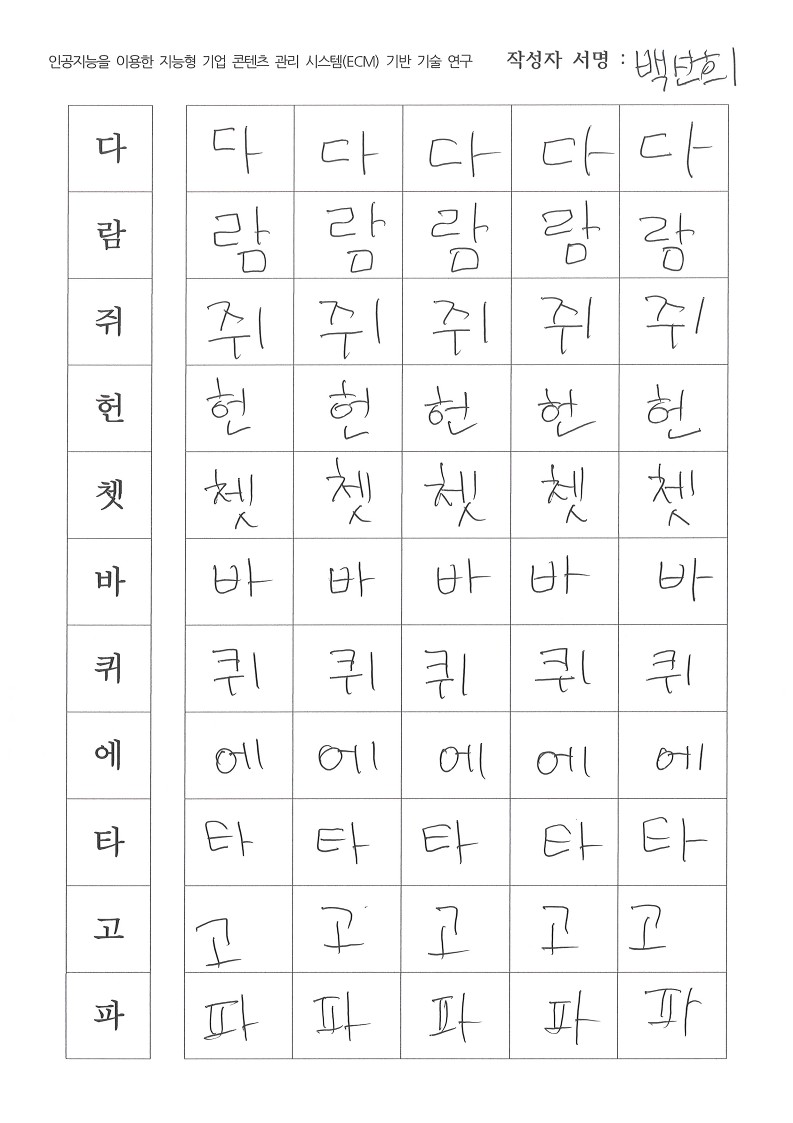 인공지능을 이용한 지능형 기업 콘텐츠 관리 시스템(ECM) 기반 기술 연구 작성자 서명 : 백난희
다 다 다 다 다 다
람 람 람 람 람 람
쥐 쥐 쥐 쥐 쥐 쥐
헌 헌 헌 헌 헌 헌
쳇 쳇 쳇 쳇 쳇 쳇
바 바 바 바 바 바
퀴 퀴 퀴 퀴 퀴 퀴
에 에 에 에 에 에
타 타 타 타 타 타
고 고 고 고 고 고
파 파 파 파 파 파